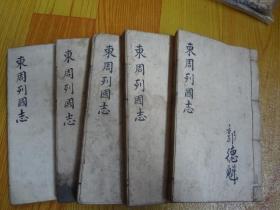 東周列國志
東周列國志
東周列國志
東周列國志
東周列國志
郭德麟